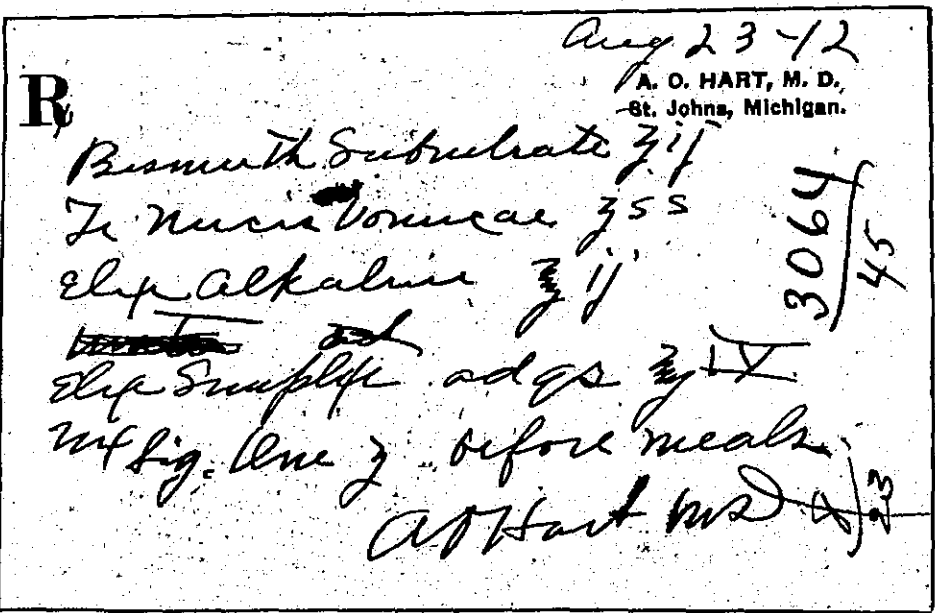 Aug 23-12
R
A. O. HART, M. D.
St. Johns, Michigan.
Bismuth Subnitrate ʒij
Tr Nucis Vomicae ʒss
Elix Alkaline ℥ij
Elix Simplex adqs ℥IV
Mx Sig. One ʒ before meals.
A O Hart MD
3064
45
8/23